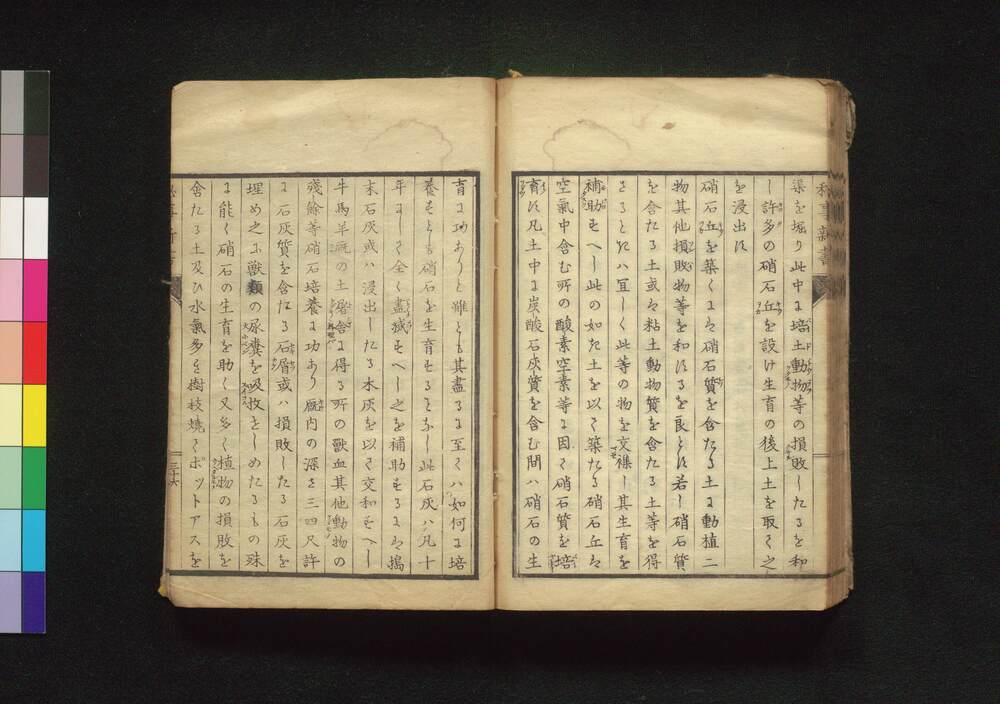 渠を堀り此中に培土動物等の損敗したるを和
し許多の硝石丘を設け生育の後上土を取て之
を浸出す
硝石丘を築くには硝石質を含たる土に動植二
物其他損敗物等を和するを良とす若し硝石質
を含たる土或は粘土動物質を含たる土等を得
さるときハ宜しく此等の物を交襍し其生育を
補助すへし此の如き土を以て築たる硝石丘は
空氣中含む所の酸素空素等に因て硝石質を培
育す凡土中に炭酸石灰質を含む間ハ硝石の生
育に功ありと雖とも其盡るに至てハ如何に培
養すとも硝石を生育することなし此石灰ハ凡十
年にして全く盡滅すへし之を補助するには搗
末石灰或ハ浸出したる木灰を以て交和すへし
牛馬羊厩の土屠舎に得る所の獸血其他動物の
殘餘等硝石培養に功あり厩内の深さ三四尺許
に石灰質を含たる石屑或ハ損敗したる石灰を
埋め之に獸類の尿糞を吸收せしめたるもの殊
に能く硝石の生育を助く又多く植物の損敗を
含たる土及ひ水氣多き樹枝燒てポットアスを
三十六